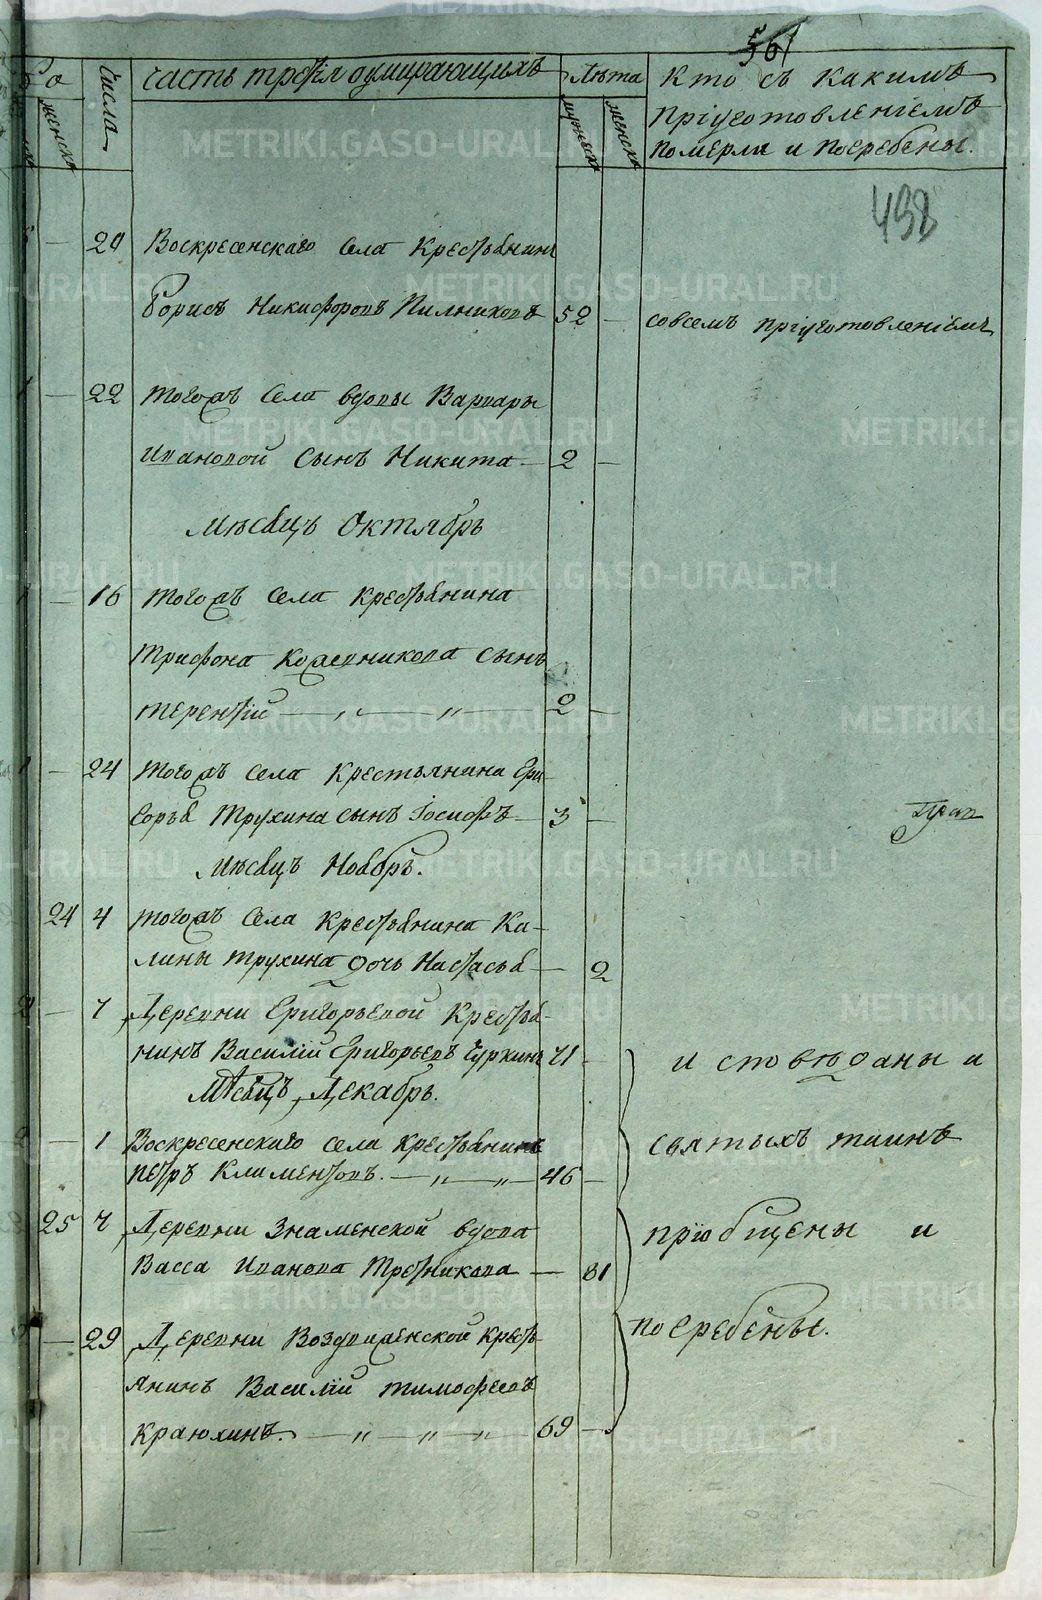 561
часть третїя оумирающихъ
Лѣта
Кто съ какимъ
числа
женска
мужеска
женска
прїуготовленїемъ
померли и погребены.
498
20 Воскресенскаго села крестьянинъ
Борисъ Никифоровъ Пилниковъ 52 —
совсемъ прїуготовленїемъ
— 22 тогожъ села вдовы Варвары
Ивановой сынъ Никита — 2 —
Мѣсяцъ Октябрь
— 16 тогожъ села крестьянина
Трифона Кожевникова сынъ
терентїй — „ — „ — 2 —
— 24 тогожъ села крестьянина Гри-
горья Трухина сынъ Іосифъ — 3 —
Мѣсяцъ Ноябрь.
24 4 тогожъ села крестьянина Ка-
лины Трухина дочь Настасья — 2
— 7 Деревни Григорьевой крестья-
нинъ Василїй Григорьевъ Чуркинъ 71 —
и споведаны и
Мѣсяцъ Декабрь.
— 1 Воскресенскаго села крестьянинъ
святыхъ таинъ
Петръ Климентовъ. — „ — „ — 46 —
25 7 Деревни Знаменской вдова
прїобщены и
Васса Иванова Третникова — 81
— 29 Деревни Воздвиженской крест-
погребены.
янинъ Василїй тимофеевъ
Краюхинъ. — „ — „ — „ — 69 —
METRIKI.GASO-URAL.RU